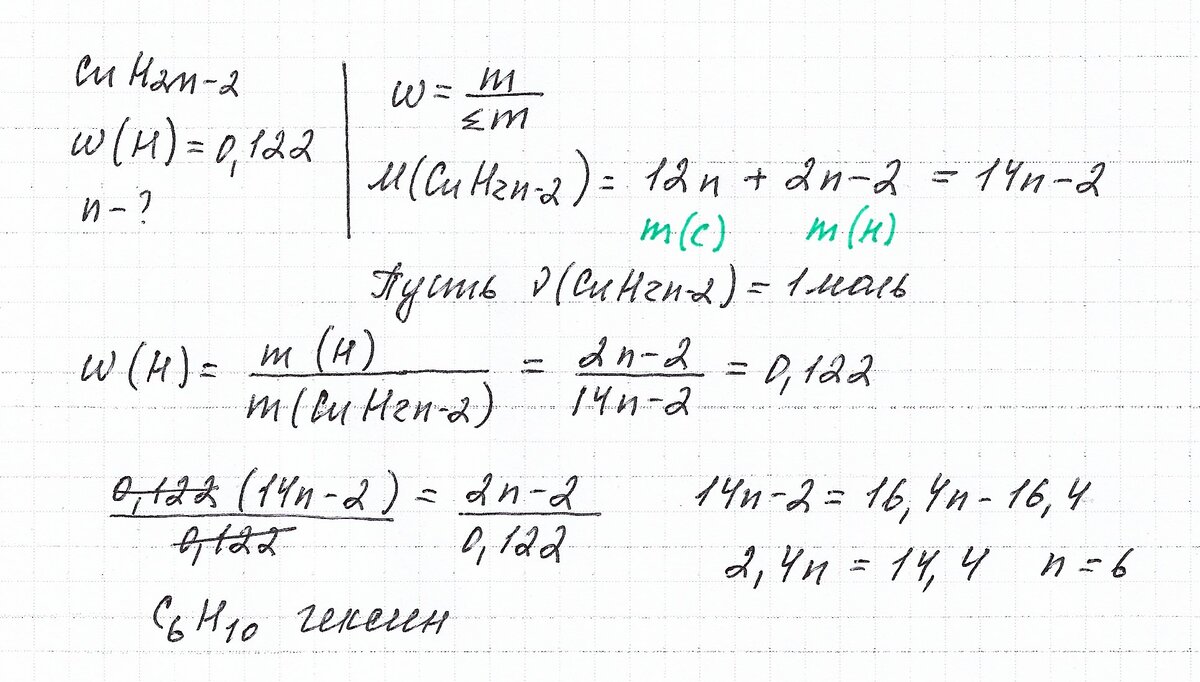 CnH2n-2
w(H) = 0,122
n - ?
w = m / Σm
M(CnH2n-2) = 12n + 2n-2 = 14n-2
m(C) m(H)
Пусть ν(CnH2n-2) = 1 моль
w(H) = m(H) / m(CnH2n-2) = 2n-2 / 14n-2 = 0,122
0,122 (14n-2) / 0,122 = 2n-2 / 0,122
14n-2 = 16,4n - 16,4
2,4n = 14,4 n = 6
C6H10 гексин